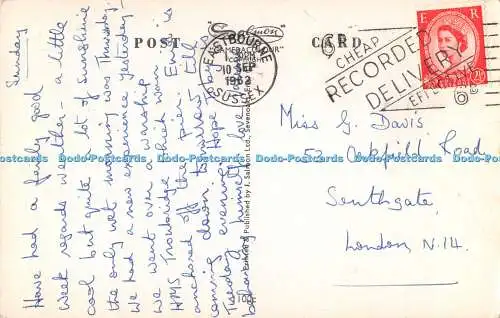 Sunday
Have had a fairly good
week regards weather - a little
cool but quite a lot of sunshine
the only wet morning was Thursday.
We had a new experience yesterday
we went over a warship
HMS Trowbridge which was
anchored off the pier. Ewa is
coming down tomorrow, tells
Tuesday evening. Hope to
himself love
POST CARD
Salmon
"CAMERACOLOUR"
Published by J. Salmon Ltd., Sevenoaks
EASTBOURNE
SEP
SUSSEX
CHEAP
RECORDED
DELIVERY
EFFECTIVE
E R
Miss G. Davis
52 Oakfield Road
Southgate,
London N.14.
Dodo-Postcards.com Dodo-Postcards.com Dodo-Postcards.com Dodo-Postcards.com